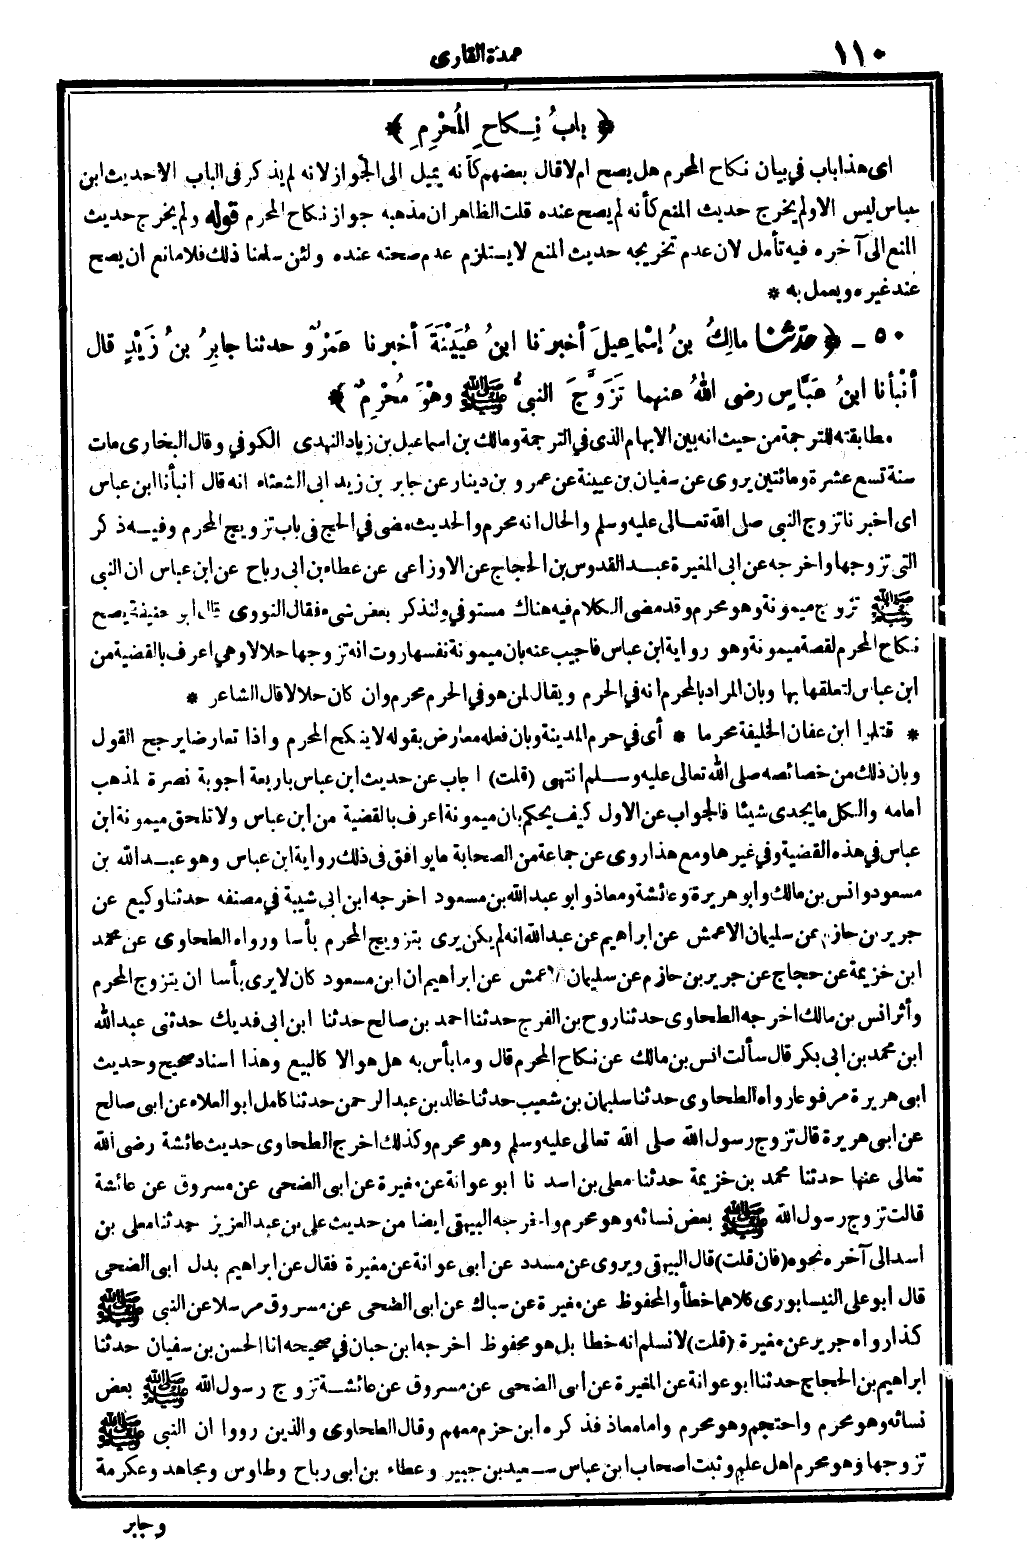 ١١٠
عمدة القارى
﴿ بابُ نِـكاحِ المُحْرِمِ ﴾
اى هذا باب في بيان نكاح المحرم هل يصح ام لا قال بعضهم كأنه يميل الى الجواز لانه لم يذكر فى الباب الاحديث ابن
عباس ليس الا ولم يخرج حديث المنع كأنه لم يصح عنده قلت الظاهر ان مذهبه جواز نكاح المحرم قوله ولم يخرج حديث
المنع الى آخره فيه تأمل لان عدم تخريجه حديث المنع لا يستلزم عدم صحته عنده ولئن سلمنا ذلك فلا مانع ان يصح
عند غيره ويعمل به *
٥٠ ـ ﴿ حدثنا مالِكُ بنُ إسْماعِيلَ أخبرنا ابنُ عُيَيْنَةَ أخبرنا عَمْرٌو حدثنا جابِرُ بنُ زَيْدٍ قال
أنْبأنا ابنُ عَبَّاسٍ رضى اللهُ عنهما تَزَوَّجَ النبىُّ ﷺ وهْوَ مُحْرِمٌ ﴾
مطابقته للترجمة من حيث انه بين الابهام الذى في الترجمة ومالك بن اسماعيل بن زياد النهدى الكوفي وقال البخارى مات
سنة تسع عشرة ومائتين يروى عن سفيان بن عيينة عن عمرو بن دينار عن جابر بن زيد ابى الشعثاء انه قال انبأنا ابن عباس
اى اخبرنا تزوج النبى صلى الله تعـالى عليه وسلم والحال انه محرم والحديث مضى في الحج فى باب تزويج المحرم وفيـه ذكر
التى تزوجها واخرجه عن ابى المغيرة عبـد القدوس بن الحجاج عن الاوزاعى عن عطاء بن ابى رباح عن ابن عباس ان النبى
ﷺ تزوج ميمونة وهو محرم وقد مضى الـكلام فيه هناك مستوفي ولنذكر بعض شىء فقال النووى قال ابو حنيفة يصح
نكاح المحرم لقصة ميمونة وهو رواية ابن عباس فاجيب عنه بان ميمونة نفسها روت انه تزوجها حلالا وهى اعرف بالقضية من
ابن عباس لتعلقها بها وبان المراد بالمحرم انه في الحرم ويقال لمن هو في الحرم محرم وان كان حلالا قال الشاعر *
* قتلوا ابن عفان الخليفة محرما * أى في حرم المدينة وبان فعله معارض بقوله لا ينكح المحرم واذا تعارضا يرجح القول
وبان ذلك من خصائصه صلى الله تعالى عليه وسـلم انتهى (قلت) اجاب عن حديث ابن عباس باربعة اجوبة نصرة لمذهب
امامه والـكل ما يجدى شيئا فالجواب عن الاول كيف يحكم بان ميمونة اعرف بالقضية من ابن عباس ولا تلحق ميمونة ابن
عباس في هذه القضية وفي غيرها ومع هذا روى عن جماعة من الصحابة ما يوافق فى ذلك رواية ابن عباس وهو عبـد الله بن
مسعود وانس بن مالك وأبو هريرة وعائشة ومعاذ وابو عبد الله بن مسعود اخرجه ابن ابى شيبة في مصنفه حدثنا وكيع عن
جرير بن حازم عن سليمان الاعمش عن ابراهيم عن عبد الله انه لم يكن يرى بتزويج المحرم بأسا ورواه الطحاوى عن محمد
ابن خزيمة عن حجاج عن جرير بن حازم عن سليمان الاعمش عن ابراهيم ان ابن مسعود كان لا يرى بأسا ان يتزوج المحرم
وأثر انس بن مالك اخرجه الطحاوى حدثنا روح بن الفرج حدثنا احمد بن صالح حدثنا ابن ابى فديك حدثنى عبد الله
ابن محمد بن ابى بكر قال سألت انس بن مالك عن نكاح المحرم قال وما بأس به هل هو الا كالبيع وهذا اسناد صحيح وحديث
ابى هريرة مرفوعا رواه الطحاوى حدثنا سليمان بن شعيب حدثنا خالد بن عبد الرحمن حدثنا كامل ابو العلاء عن ابى صالح
عن ابى هريرة قال تزوج رسول الله صلى الله تعالى عليه وسلم وهو محرم وكذلك اخرج الطحاوى حديث عائشة رضى الله
تعالى عنها حدثنا محمد بن خزيمة حدثنا معلى بن اسد نا ابو عوانة عن مغيرة عن ابى الضحى عن مسروق عن عائشة
قالت تزوج رسول الله ﷺ بعض نسائه وهو محرم واخرجه البيهقى ايضا من حديث على بن عبد العزيز حدثنا معلى بن
اسد الى آخره نحوه (فان قلت) قال البيهقى ويروى عن مسدد عن ابى عوانة عن مغيرة فقال عن ابراهيم بدل ابى الضحى
قال أبو على النيسابورى كلاهما خطأ والمحفوظ عن مغيرة عن سباك عن ابى الضحى عن مسروق مرسلا عن النبى ﷺ
كذا رواه جرير عن مغيرة (قلت) لا نسلم انه خطا بل هو محفوظ اخرجه ابن حبان في صحيحه انا الحسن بن سفيان حدثنا
ابراهيم بن الحجاج حدثنا ابو عوانة عن المغيرة عن ابى الضحى عن مسروق عن عائشـة تزوج رسول الله ﷺ بعض
نسائه وهو محرم واحتجم وهو محرم واما معاذ فذكره ابن حزم معهم وقال الطحاوى والذين رووا ان النبى ﷺ
تزوجها وهو محرم اهل علم وثبت اصحاب ابن عباس سـعيد بن جبير وعطاء بن ابى رباح وطاوس ومجاهد وعكرمة
وجابر